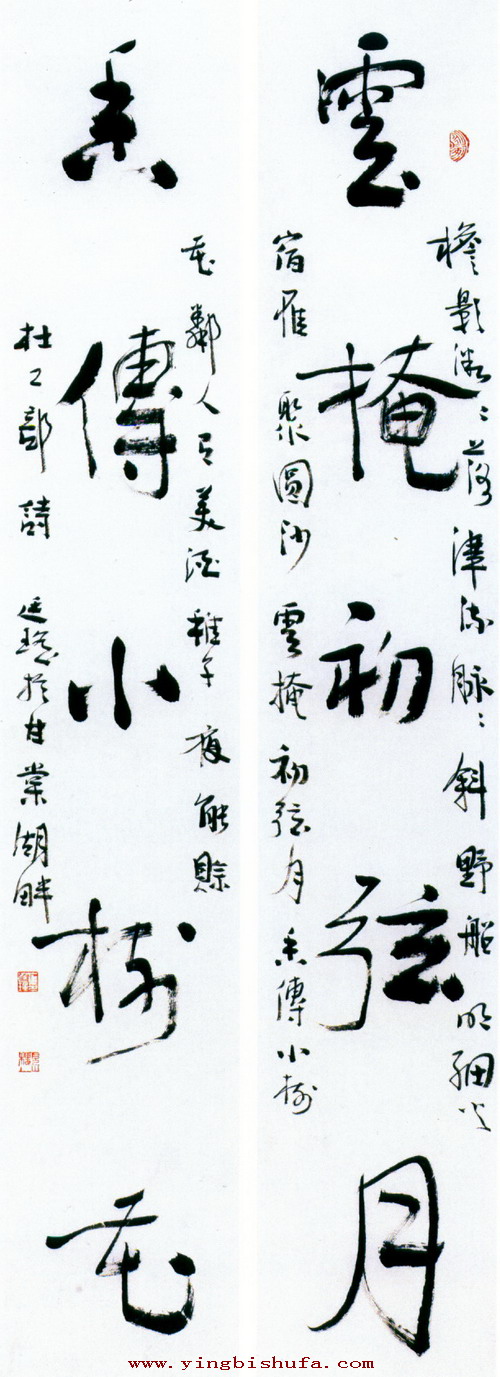 雲掩初弦月
檐影微〻落津流脉〻斜野船明細火
宿雁聚圓沙雲掩初弦月香傳小樹
香傳小樹花
花鄰人有美酒稚子夜能賒
杜工部詩 廷於甘棠湖畔
www.yingbishufa.com